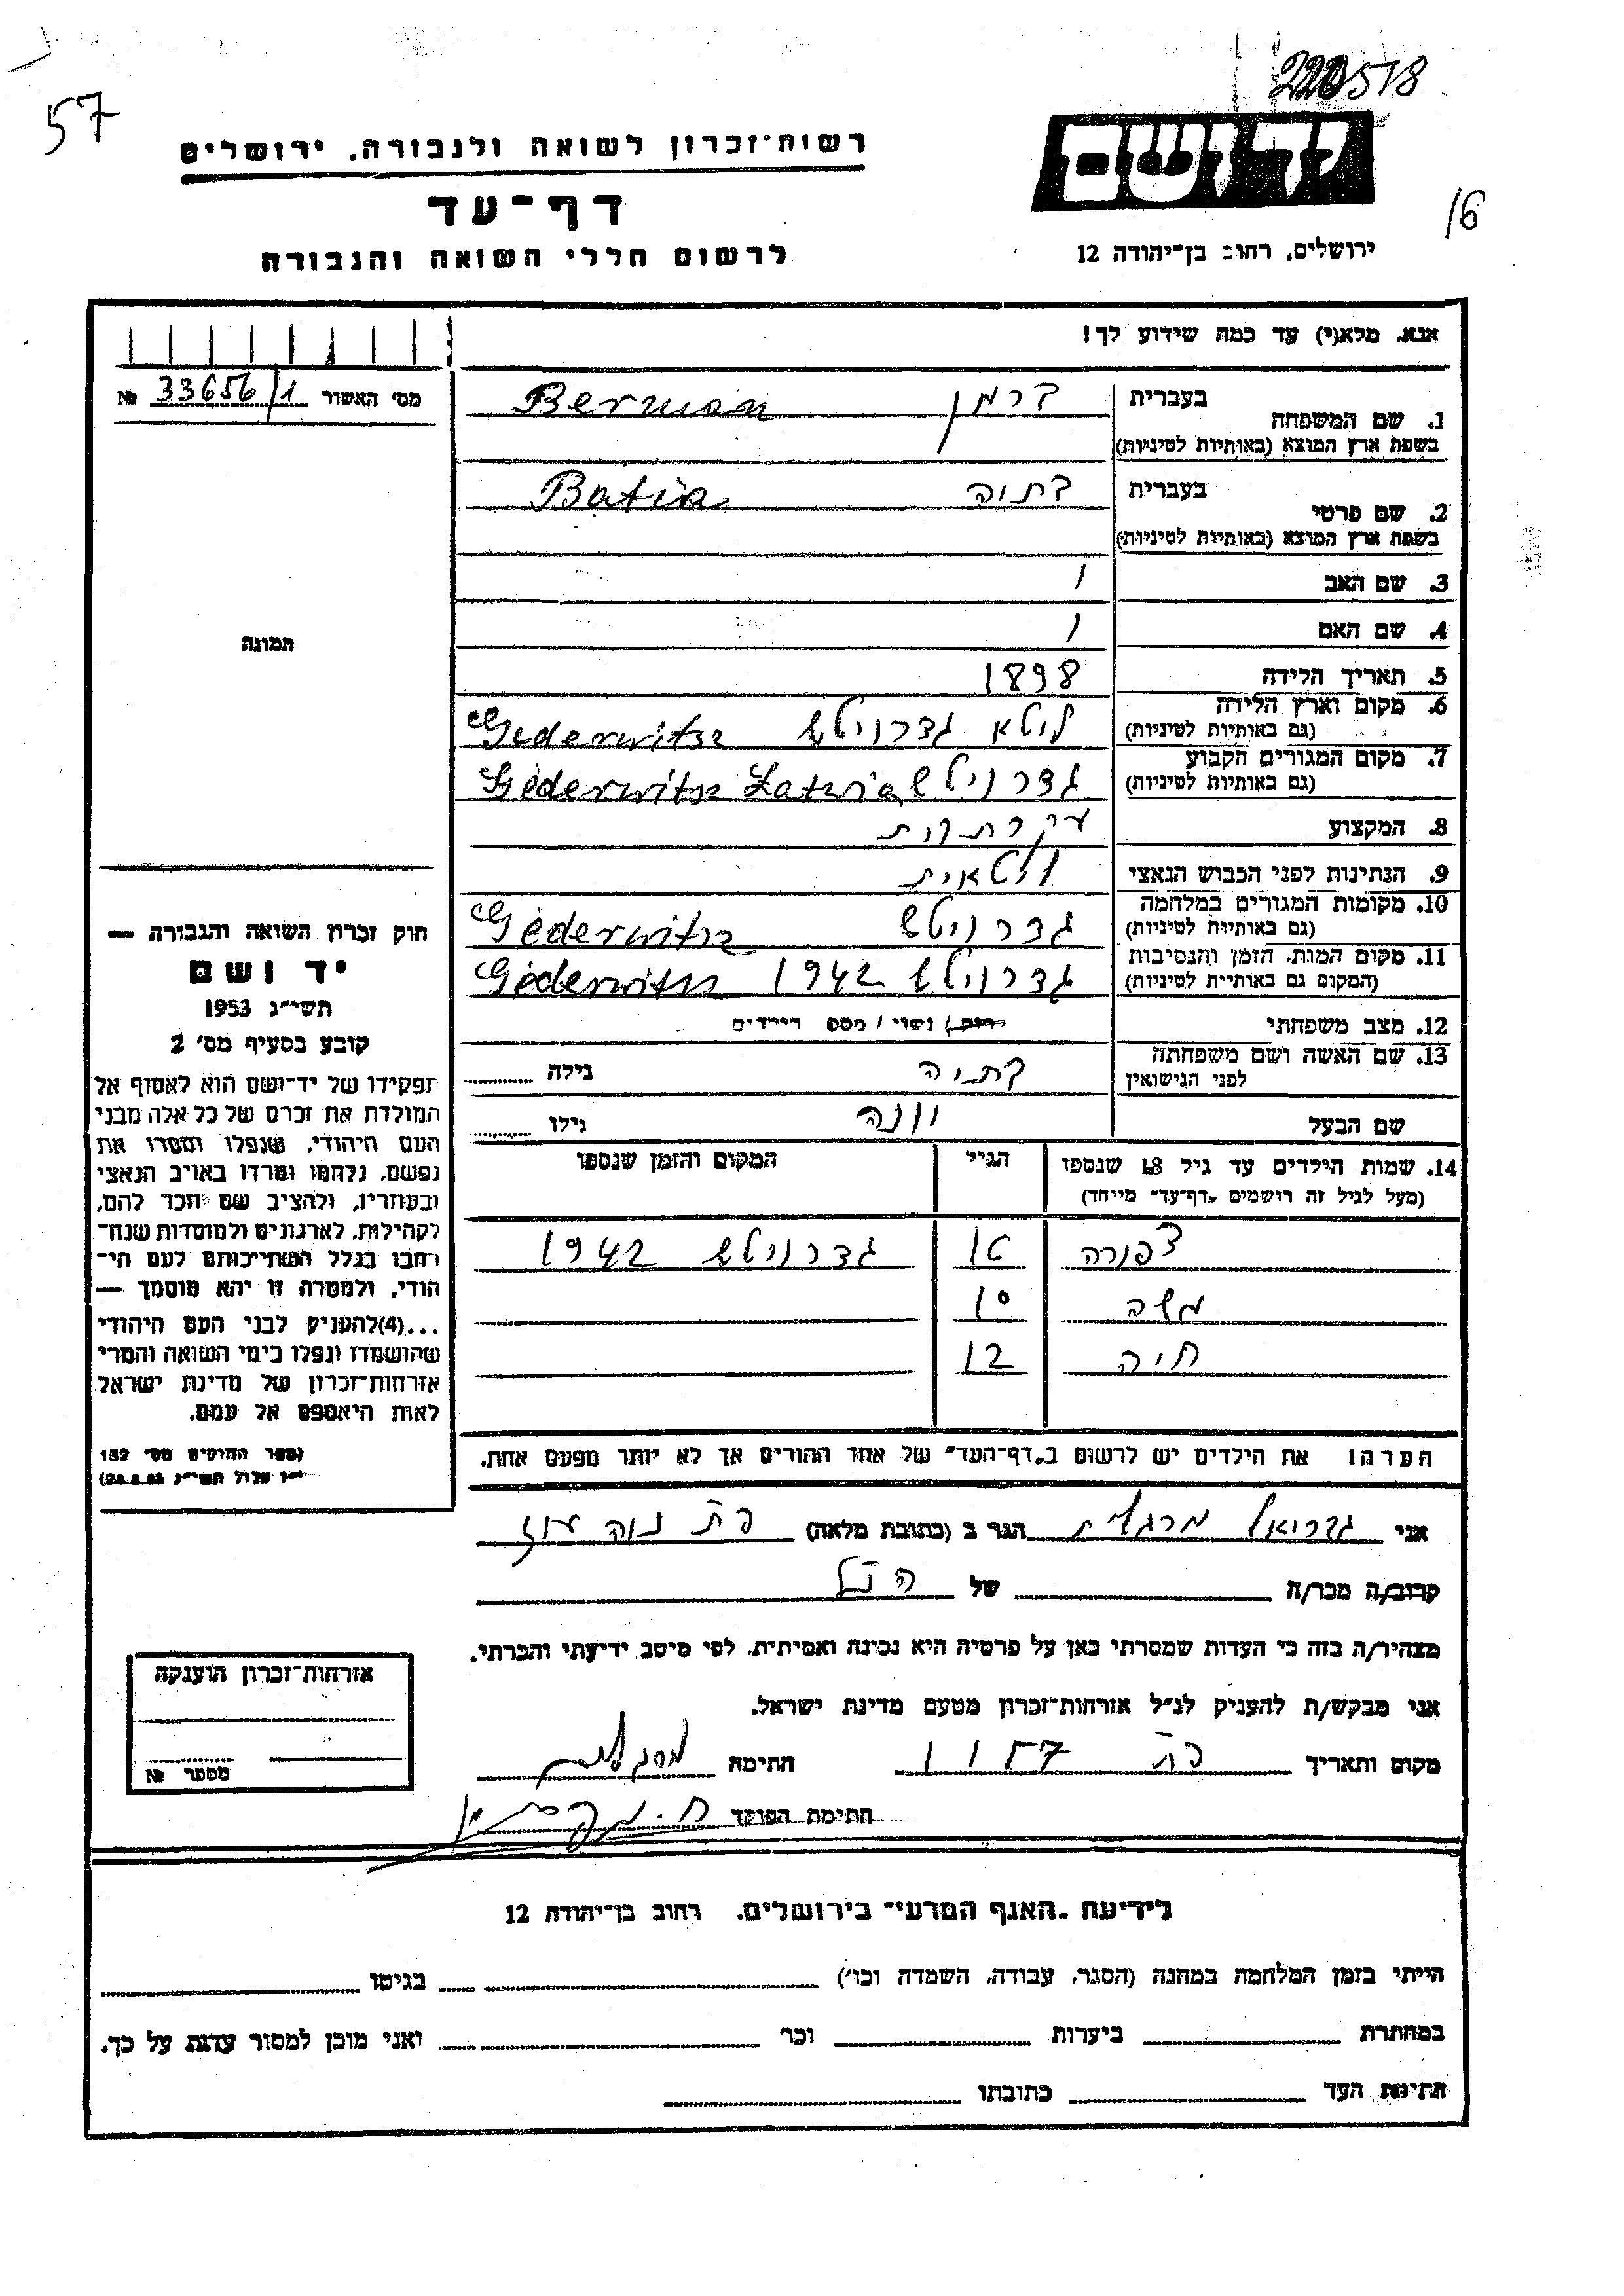 220518
57
16
יד ושם
ירושלים, רחוב בן־יהודה 12
רשות־זכרון לשואה ולגבורה, ירושלים
דף־עד
לרשום חללי השואה והגבורה
אנא, מלא(י) עד כמה שידוע לך!
מס׳ האשור 33656/1 №
תמונה
1. שם המשפחה בעברית ברמן Berman
בשפת ארץ המוצא (באותיות לטיניות)
2. שם פרטי בעברית בתיה Batia
בשפת ארץ המוצא (באותיות לטיניות)
3. שם האב /
4. שם האם /
5. תאריך הלידה 1898
6. מקום וארץ הלידה ליטא גדרויטש Gederwitsz
(גם באותיות לטיניות)
7. מקום המגורים הקבוע גדרויטש Gederwitsz Latwia
(גם באותיות לטיניות)
8. המקצוע עקרת בית
9. הנתינות לפני הכבוש הנאצי ליטאית
10. מקומות המגורים במלחמה גדרויטש Gederwitsz
(גם באותיות לטיניות)
11. מקום המות, הזמן והנסיבות גדרויטש 1942 Gederwitsz
(המקום גם באותיות לטיניות)
12. מצב משפחתי רוק/ נשוי/ מספ הילדים
13. שם האשה ושם משפחתה בתיה גילה
לפני הנישואין
שם הבעל יונה גילו
14. שמות הילדים עד גיל 18 שנספו הגיל המקום והזמן שנספו
(מעל לגיל זה רושמים „דף־עד״ מייחד)
צפורה 16 גדרויטש 1942
משה 10
חיה 12
הערה! את הילדים יש לרשום ב„דף־העד״ של אחד ההורים אך לא יותר מפעם אחת.
חוק זכרון השואה והגבורה —
יד ושם
תשי״ג 1953
קובע בסעיף מס׳ 2
תפקידו של יד־ושם הוא לאסוף אל
המולדת את זכרם של כל אלה מבני
העם היהודי, שנפלו ומסרו את
נפשם, נלחמו ומרדו באויב הנאצי
ובעוזריו, ולהציב שם וזכר להם,
לקהילות, לארגונים ולמוסדות שנח־
רבו בגלל השתייכותם לעם הי־
הודי, ולמטרה זו יהא מוסמך —
...(4) להעניק לבני העם היהודי
שהושמדו ונפלו בימי השואה והמרי
אזרחות־זכרון של מדינת ישראל
לאות היאספם אל עמם.
(ספר החוקים מס׳ 132
י״ז אלול תשי״ג 28.8.53)
אני גבריאל מרגלית הגר ב (כתובת מלאה) פת נוה עוז
קרוב/ה מכר/ה של הנ״ל
מצהיר/ה בזה כי העדות שמסרתי כאן על פרטיה היא נכונה ואמיתית, לפי מיטב ידיעתי והכרתי.
אני מבקש/ת להעניק לנ״ל אזרחות־זכרון מטעם מדינת ישראל.
מקום ותאריך פת חתימה
חתימת הפוקד
אזרחות־זכרון הוענקה
מספר №
לידיעת „האגף המדעי״ בירושלים, רחוב בן־יהודה 12
הייתי בזמן המלחמה במחנה (הסגר, עבודה, השמדה וכו׳) בגיטו
במחתרת ביערות וכו׳ ואני מוכן למסור עדות על כך.
חתימת העד כתובתו